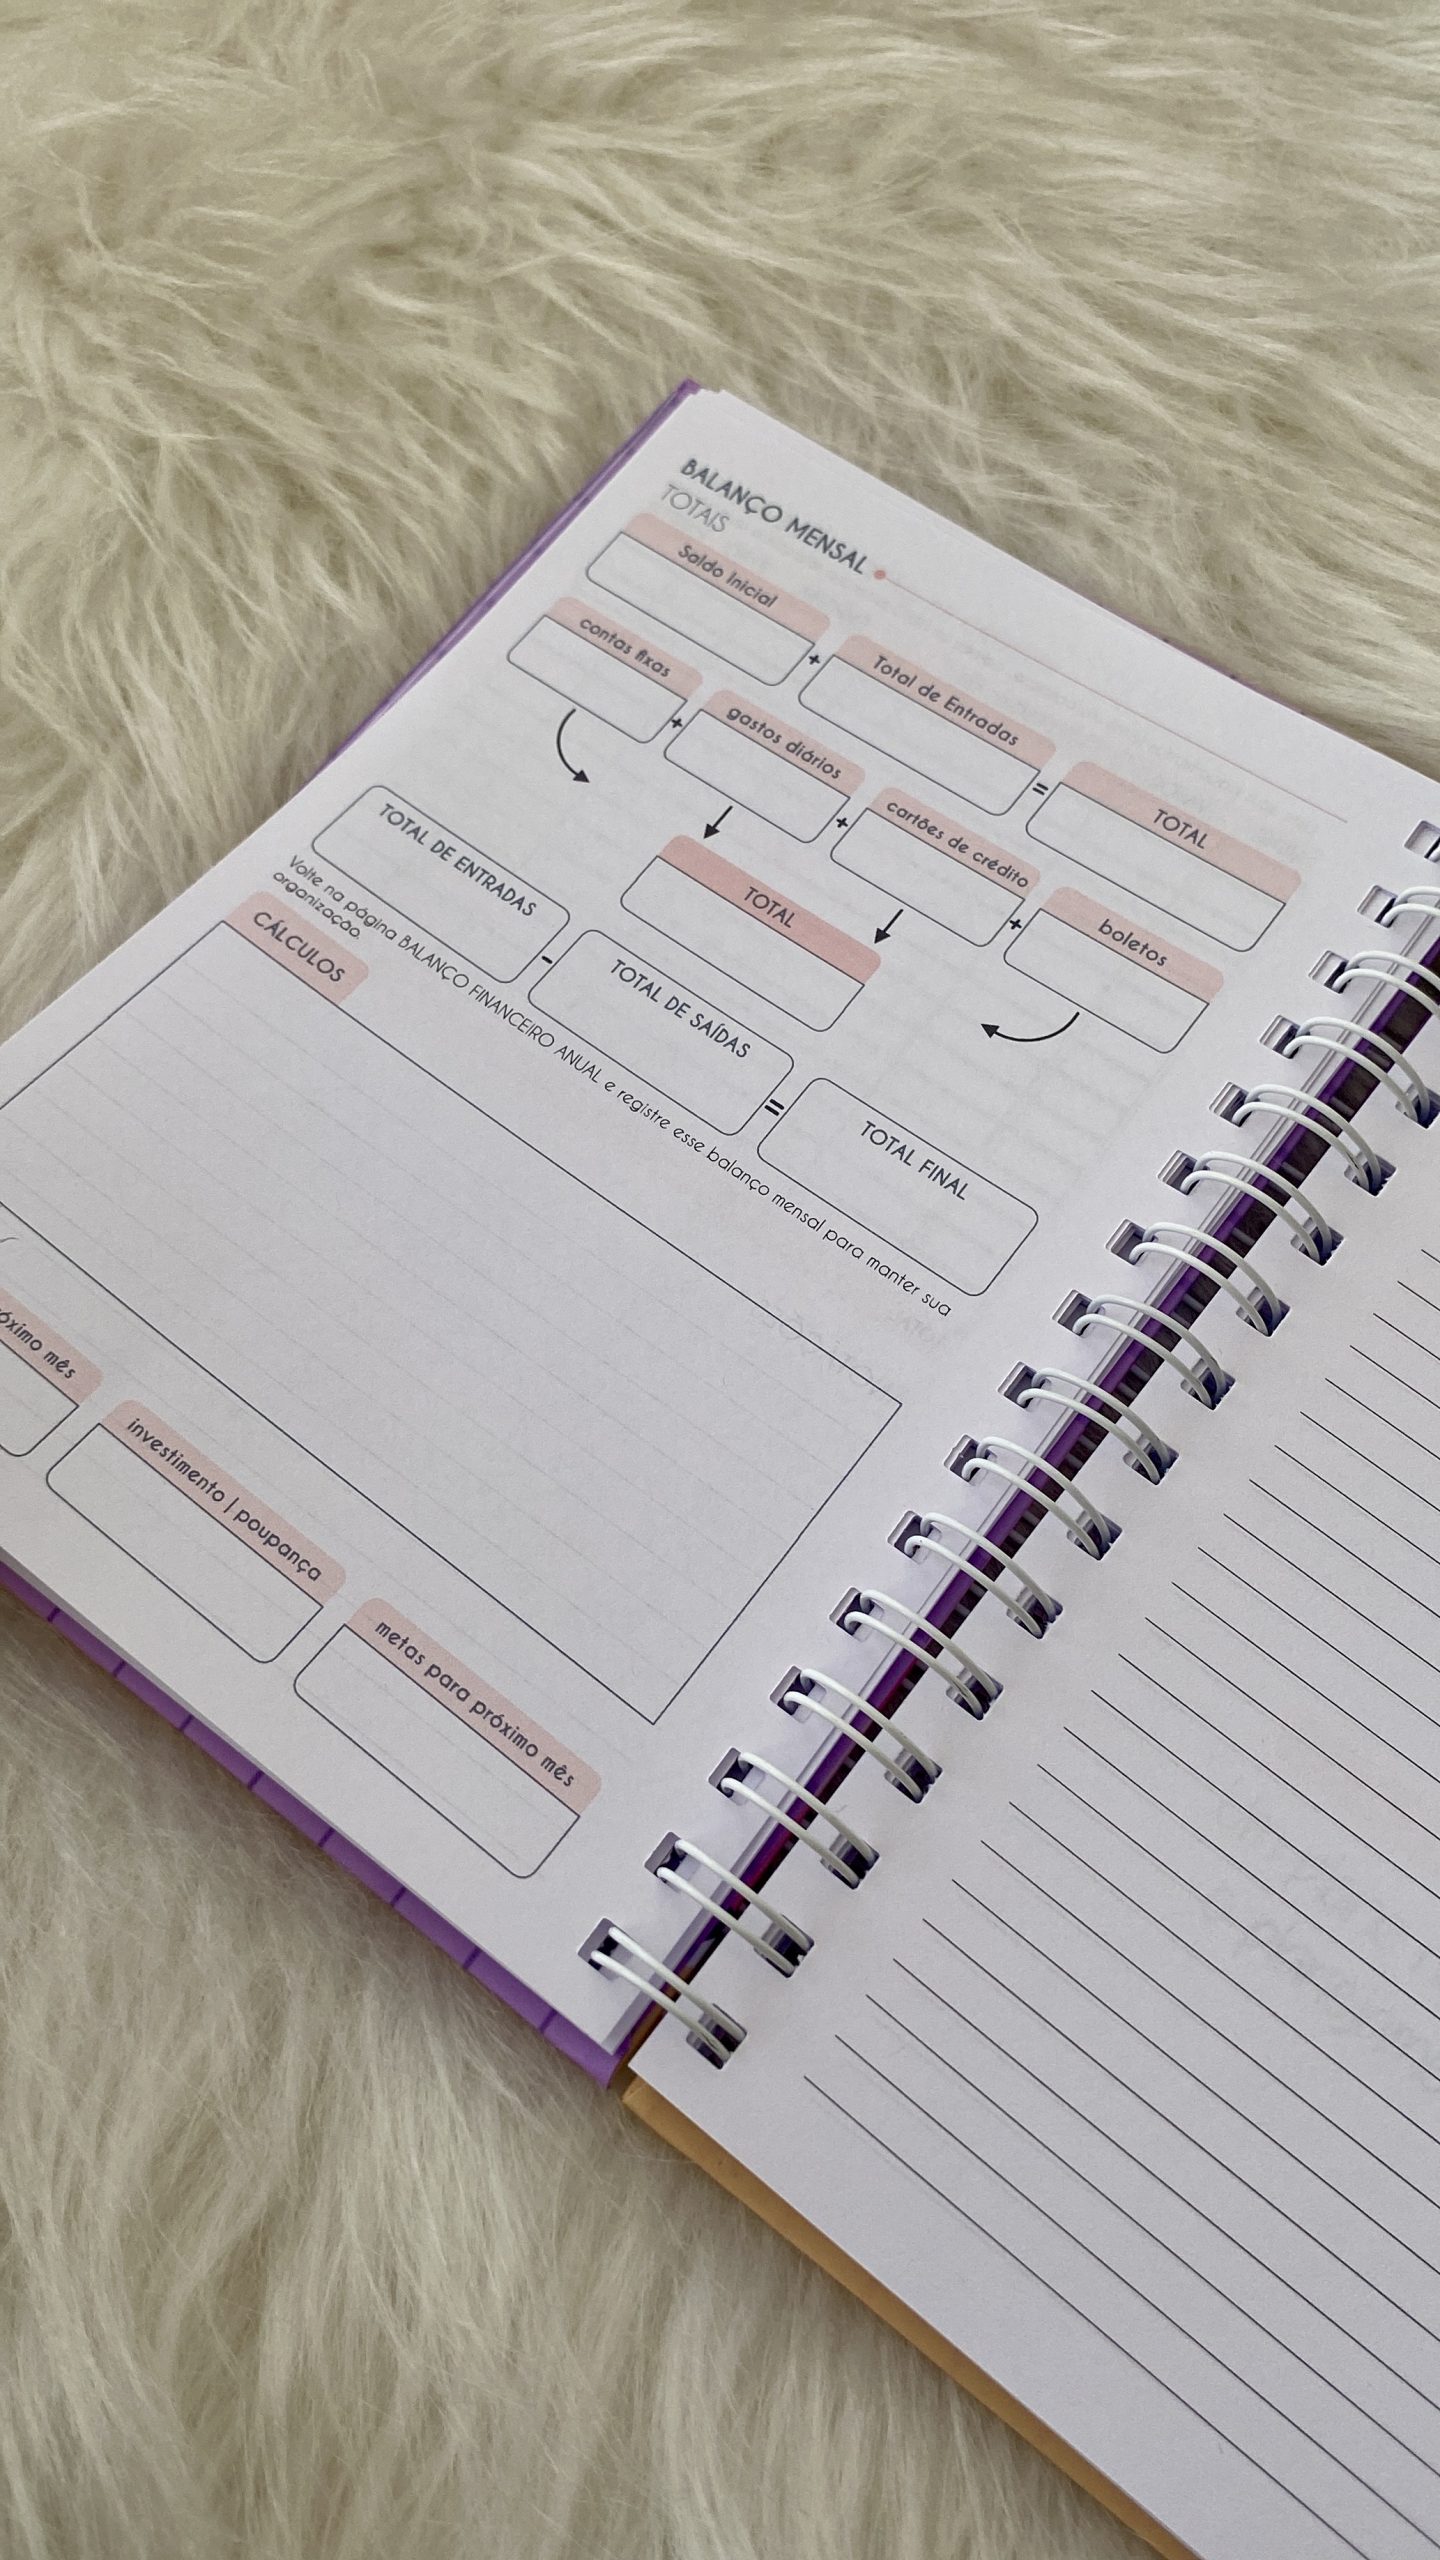 BALANÇO MENSAL
TOTAIS
Saldo Inicial + Total de Entradas = TOTAL
contas fixas + gastos diários + cartões de crédito + boletos
TOTAL
TOTAL DE ENTRADAS - TOTAL DE SAÍDAS = TOTAL FINAL
Volte na página BALANÇO FINANCEIRO ANUAL e registre esse balanço mensal para manter sua
organização.
CÁLCULOS
próximo mês
investimento | poupança
metas para próximo mês